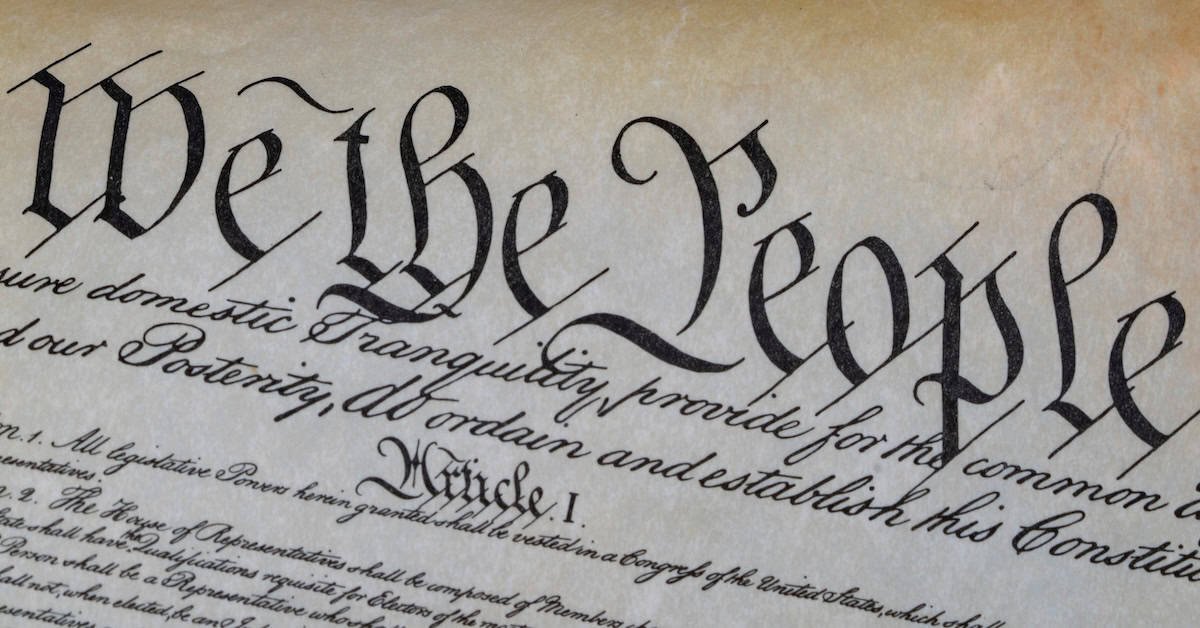 We the People
sure domestic Tranquility, provide for the common
d our Posterity, do ordain and establish this Constitu
Article. I.
n. 1. All legislative Powers herein granted shall be vested in a Congress of the United States, which shall
resentatives.
n. 2. The House of Representatives shall be composed of Members
State shall have the Qualifications requisite for Electors of the most
Person shall be a Representative who sha
all not, when elected, be an In
resentatives